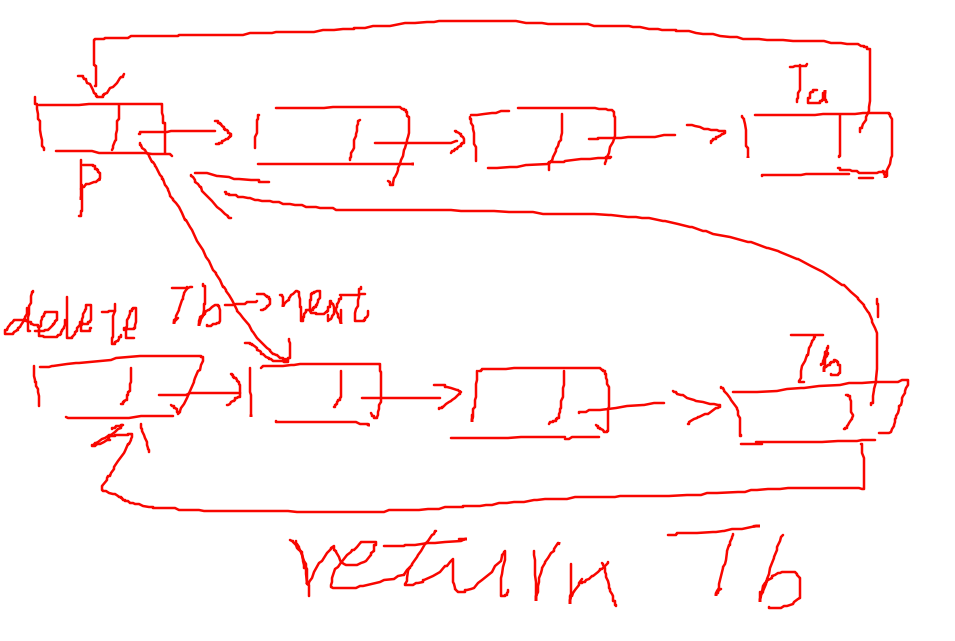 Ta
P
delete Tb->next
Tb
return Tb